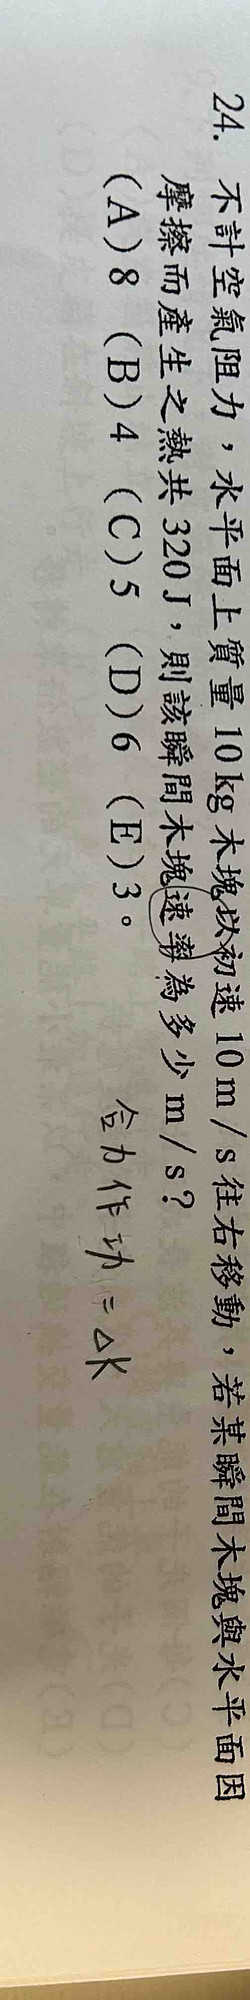 24. 不計空氣阻力，水平面上質量 10 kg 木塊以初速 10 m / s 往右移動，若某瞬間木塊與水平面因
摩擦而產生之熱共 320 J，則該瞬間木塊速率為多少 m / s？
(A) 8 (B) 4 (C) 5 (D) 6 (E) 3。
合力作功 = ΔK